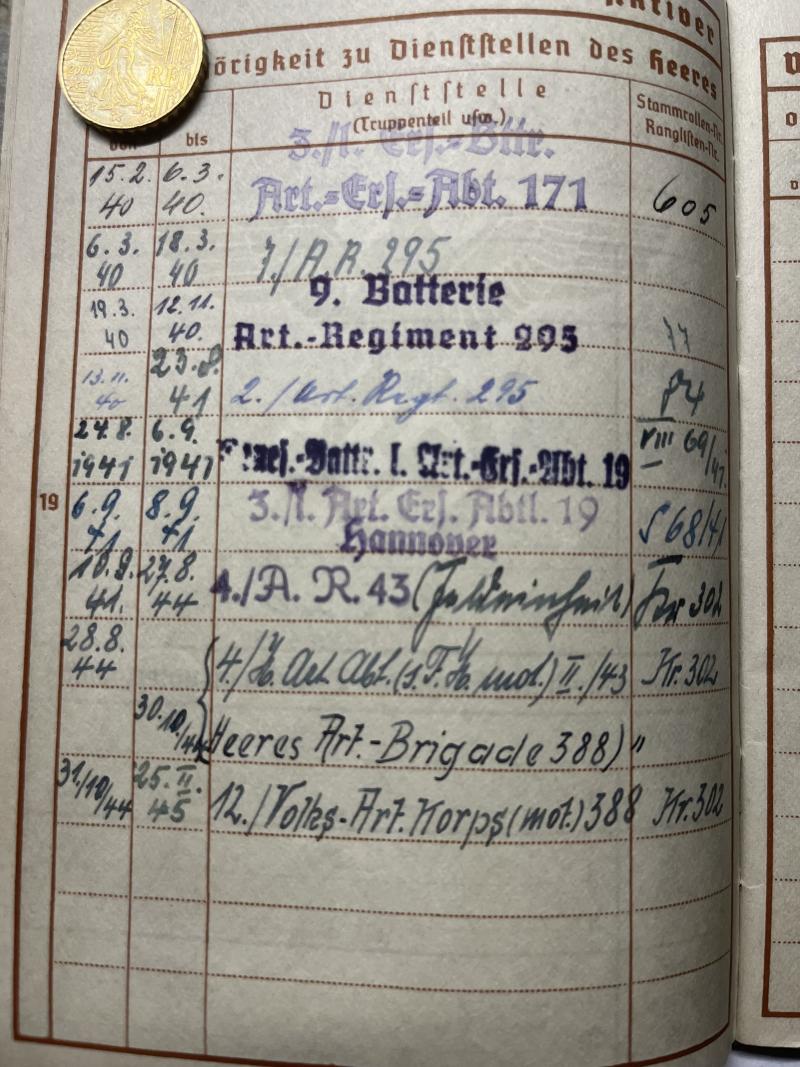 aktiver
örigkeit zu Dienststellen des Heeres
von
bis
Dienststelle
(Truppenteil usw.)
Stammrollen-Nr.
Ranglisten-Nr.
15.2. 6.3. 3./I. Ers.-Bttr.
40 40. Art.-Ers.-Abt. 171 605
6.3. 18.3. 7./A.R. 295
40 40
19.3. 12.11. 9. Batterie
40 40. Art.-Regiment 295 77
13.11. 23.8.
40 41 2./Art. Regt. 295 74
24.8. 6.9. VIII 69/41.
1941 1941 Gnes.-Battr. I. Art.-Ers.-Abt. 19
19 6.9. 8.9. 3./I. Art. Ers. Abtl. 19
41 41 Hannover S 68/41
10.9. 27.8. 4./A. R. 43 (Feldeinheit) Kr 302
41. 44
28.8.
44 4./H. Art. Abt. (s.F.H. mot.) II./43 Kr. 302
30.10/44 Heeres Art.-Brigade 388) "
31./10/44 25.II. 45 12./Volks-Art. Korps (mot.) 388 Kr. 302